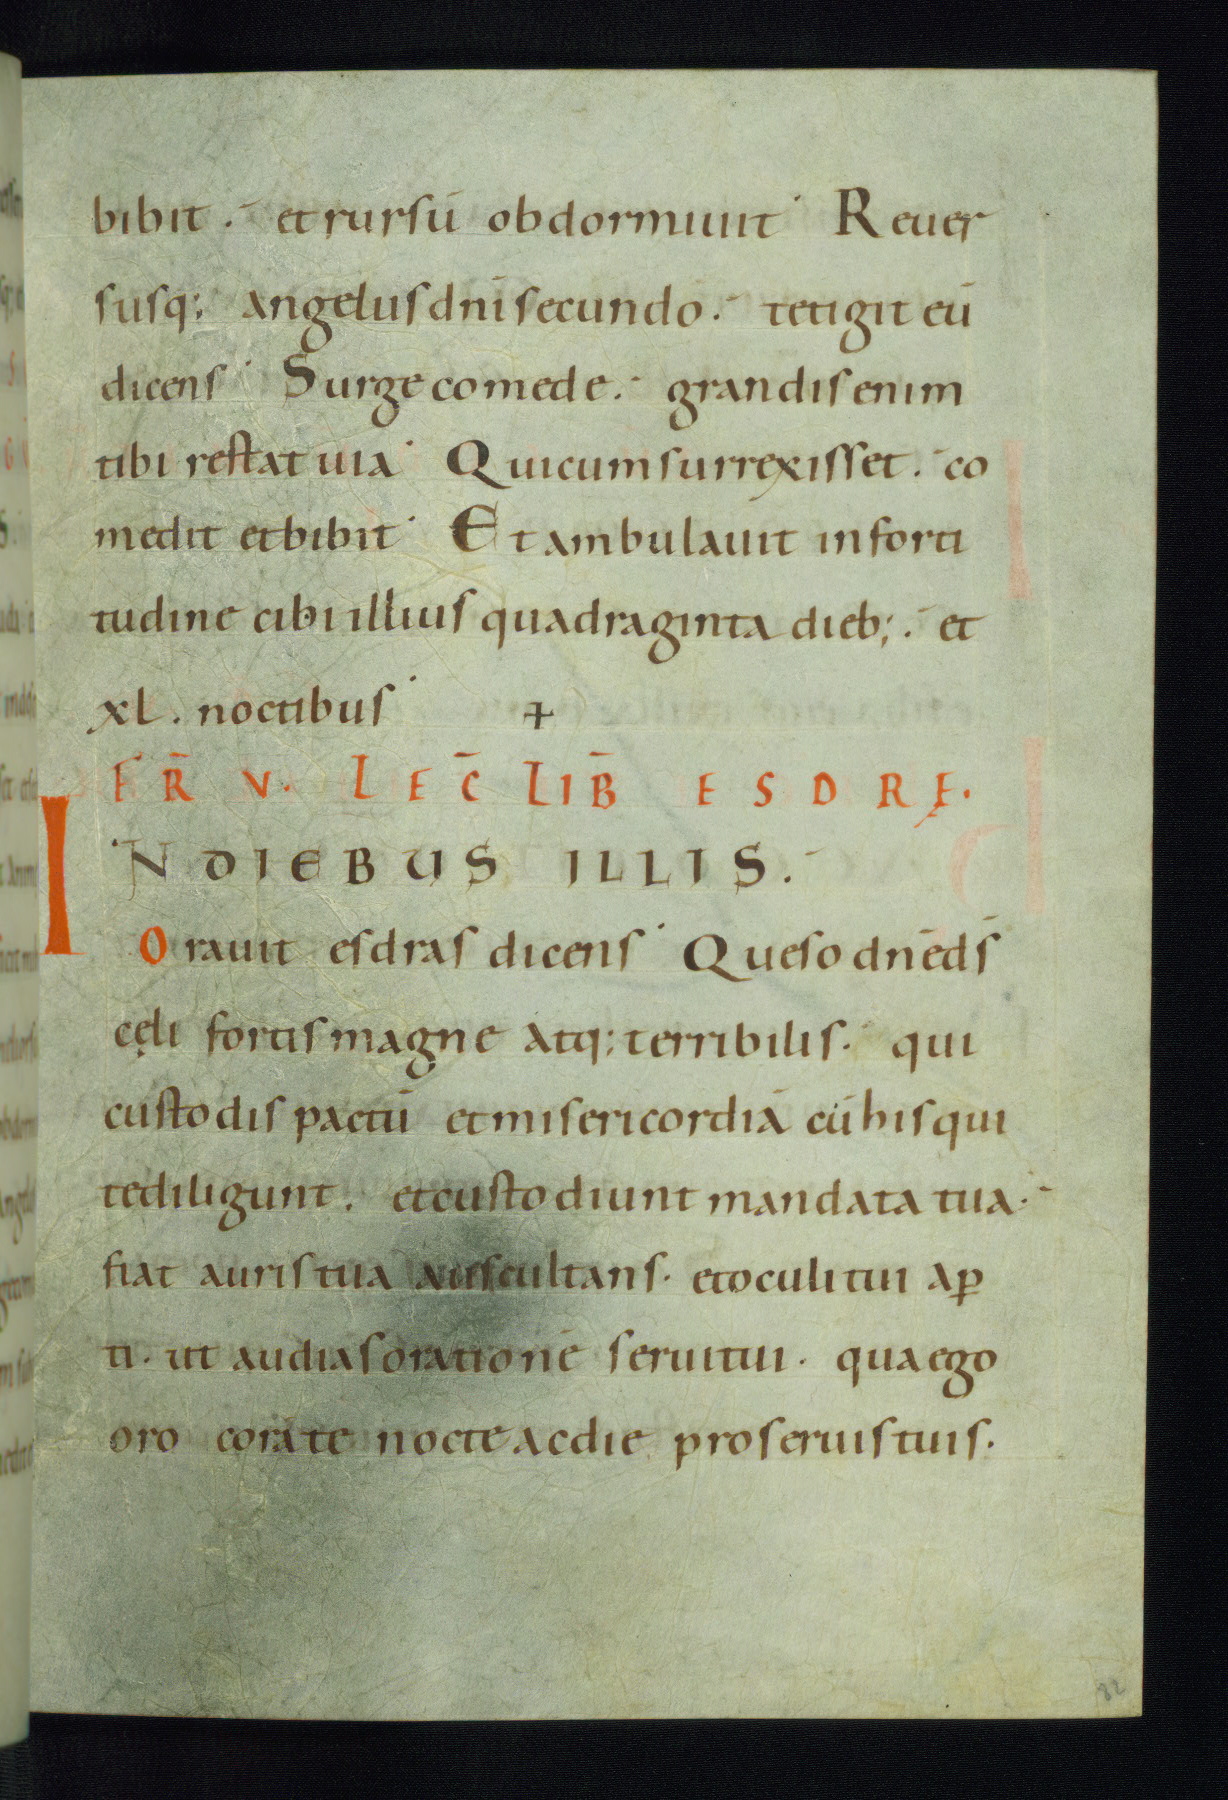 bibit. et rursū obdormiuit Reuer
susq; angelus dn̄i secundo. tetigit eū
dicens Surge comede. grandis enim
tibi restat uia Qui cum surrexisset. co
medit et bibit Et ambulauit in forti
tudine cibi illius quadraginta dieb;. et
xl. noctibus +
FR̄ V. LEC̄ LIB̄ ESDRĘ.
IN DIEBUS ILLIS.
Orauit esdras dicens Queso dn̄e ds̄
cęli fortis magne atq; terribilis. qui
custodis pactū et misericordiā cū his qui
te diligunt. et custodiunt mandata tua.
fiat auris tua auscultans. et oculi tui aꝑ
ti. ut audias orationē serui tui. qua ego
oro corā te nocte ac die pro seruis tuis.
82